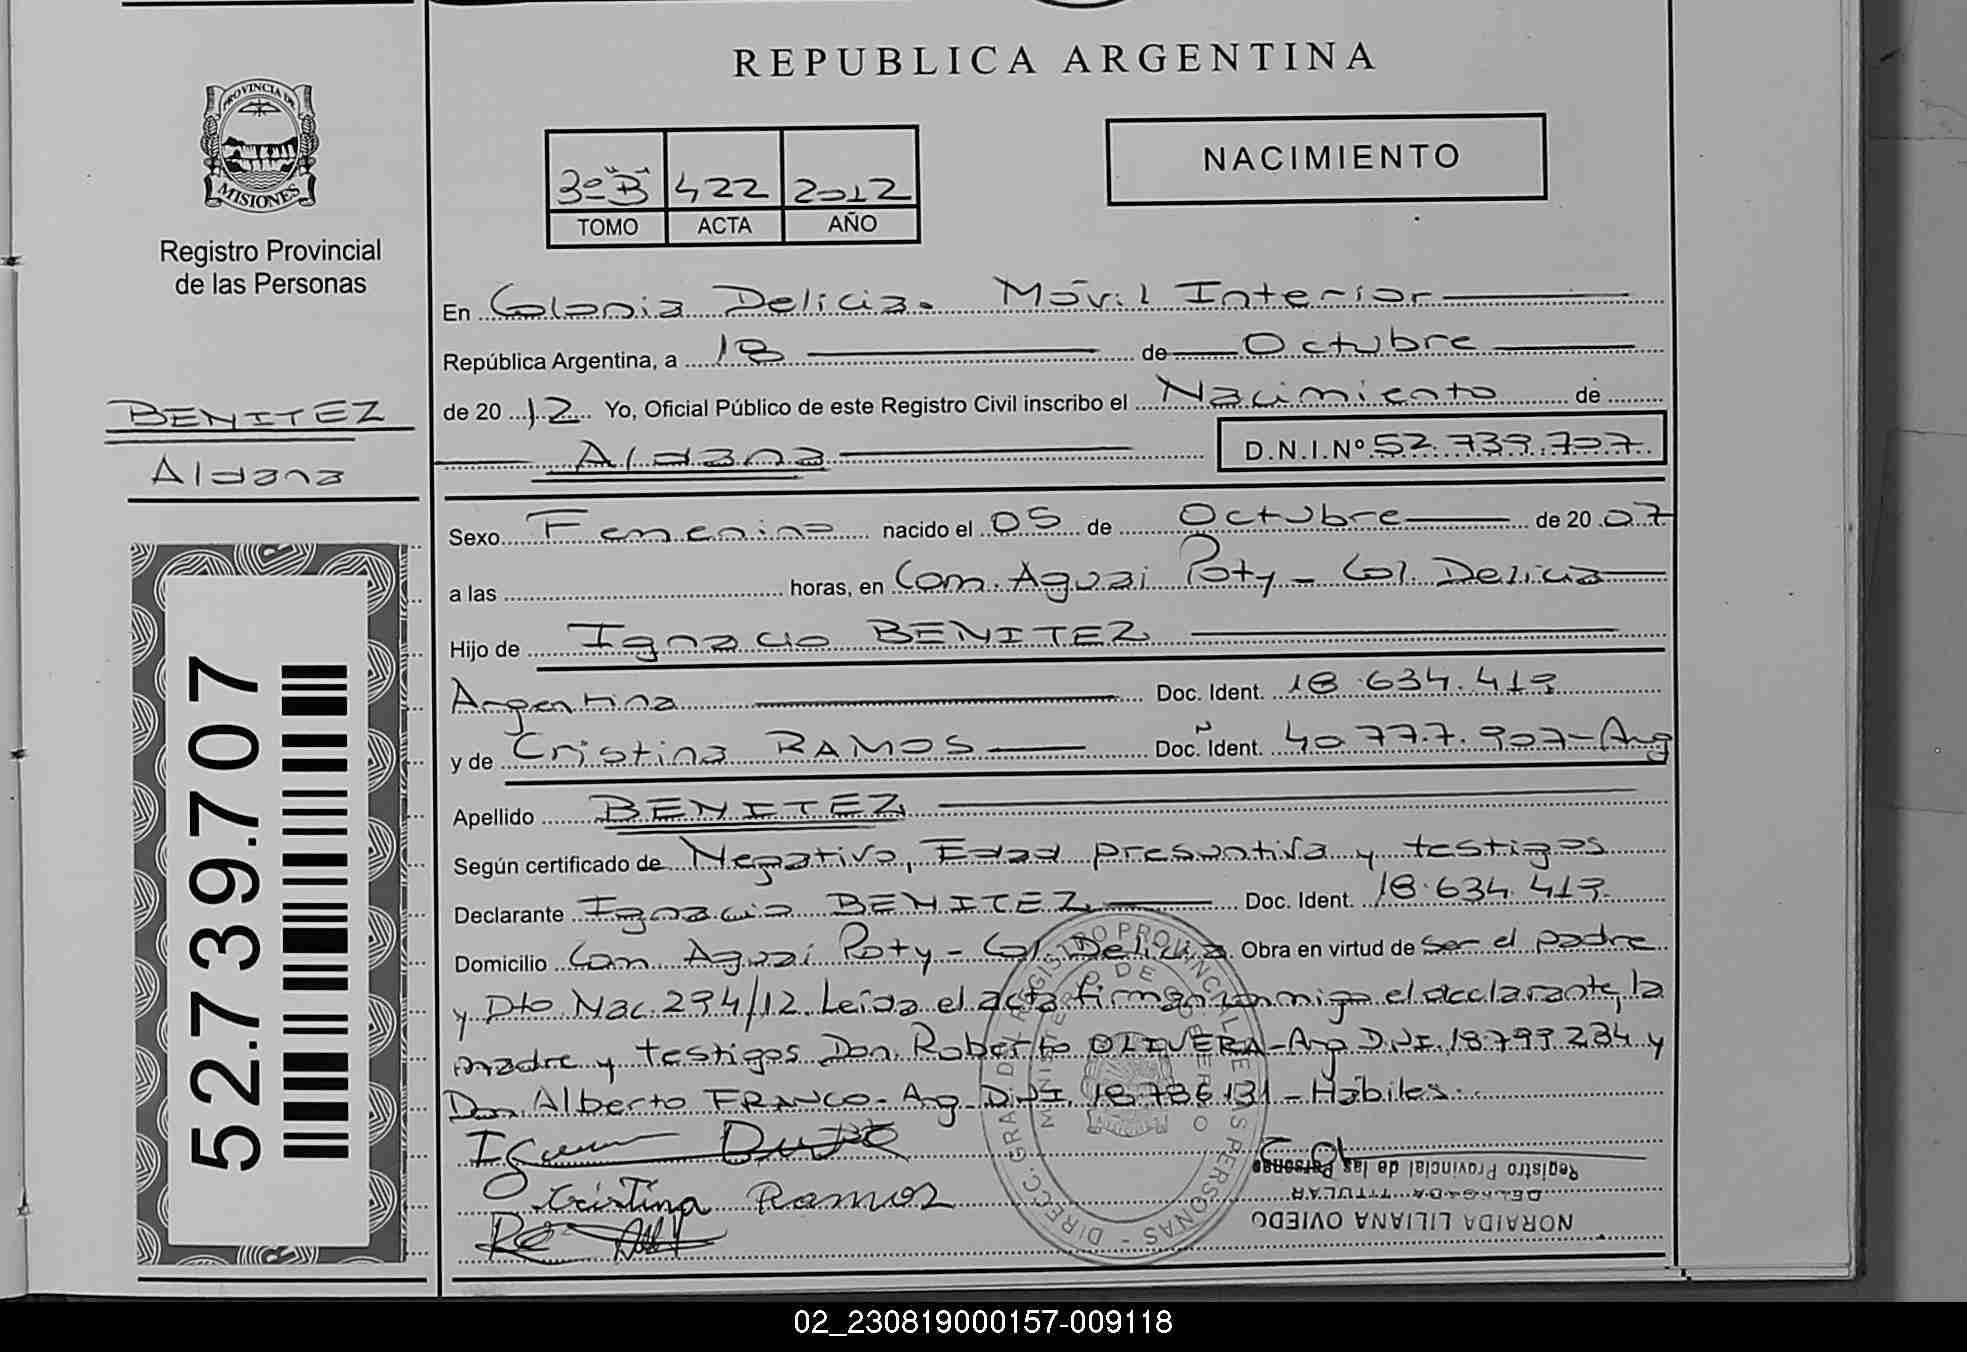 REPUBLICA ARGENTINA
PROVINCIA DE
MISIONES
Registro Provincial
de las Personas
3º "B" 422 2012
TOMO ACTA AÑO
NACIMIENTO
BENITEZ
Aldana
52.739.707
En Colonia Delicia. Móvil Interior
República Argentina, a 18 de Octubre
de 2012 Yo, Oficial Público de este Registro Civil inscribo el Nacimiento de
Aldana D.N.I.Nº 52.739.707
Sexo Femenino nacido el 05 de Octubre de 2007
a las horas, en Com. Aguai Poty - Col. Delicia
Hijo de Ignacio BENITEZ
Argentina Doc. Ident. 18.634.419
y de Cristina RAMOS Doc. Ident. 40.777.907-Arg
Apellido BENITEZ
Según certificado de Negativo, Edad presuntiva y testigos
Declarante Ignacio BENITEZ Doc. Ident. 18.634.419
Domicilio Com Aguai Poty - Col. Delicia. Obra en virtud de ser el padre
y Dto Nac. 294/12. Leída el acta firman conmigo el declarante, la
madre y testigos Don Roberto OLIVERA-Arg D.N.I. 18.799.284 y
Don Alberto FRANCO- Arg D.N.I. 18.786.131 - Hábiles:
Cristina Ramos
DIRECC. GRAL. DEL REGISTRO PROVINCIAL DE LAS PERSONAS -
MINISTERIO DE GOBIERNO
NORAIDA LILIANA OVIEDO
DELEGADA TITULAR
Registro Provincial de las Personas
02_230819000157-009118